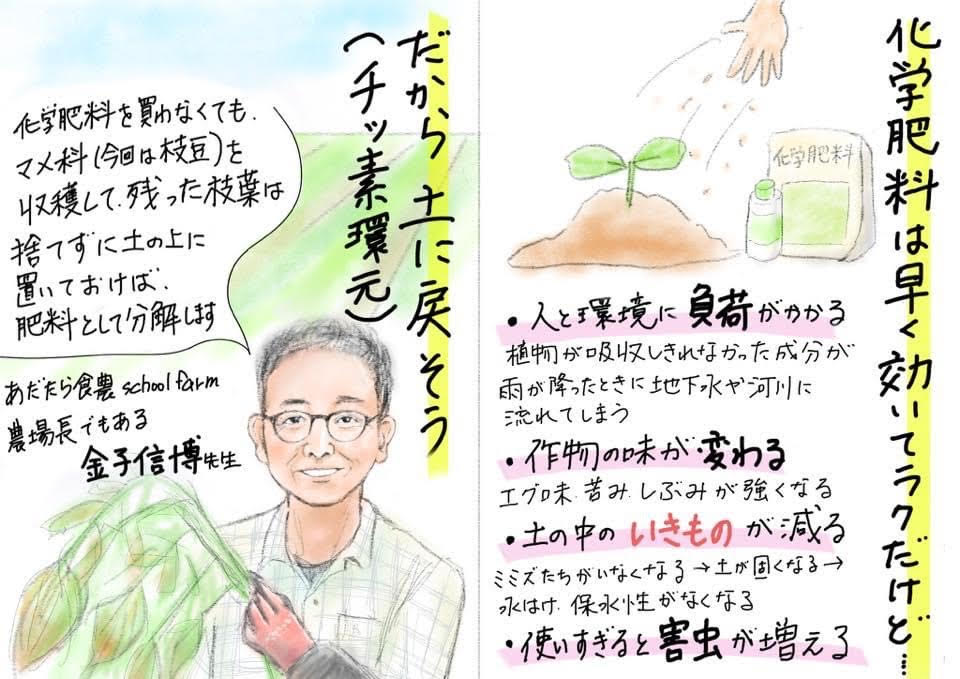 化学肥料は早く効いてラクだけど…
化学肥料
・人と環境に負荷がかかる
植物が吸収しきれなかった成分が
雨が降ったときに地下水や河川に
流れてしまう
・作物の味が変わる
エグ味、苦み、しぶみが強くなる
・土の中のいきものが減る
ミミズたちがいなくなる→土が固くなる→
水はけ、保水性がなくなる
・使いすぎると害虫が増える
だから土に戻そう
(チッ素環元)
化学肥料を買わなくても、
マメ科(今回は枝豆)を
収穫して、残った枝葉は
捨てずに土の上に
置いておけば、
肥料として分解します
あだたら食農 school farm
農場長でもある
金子信博先生